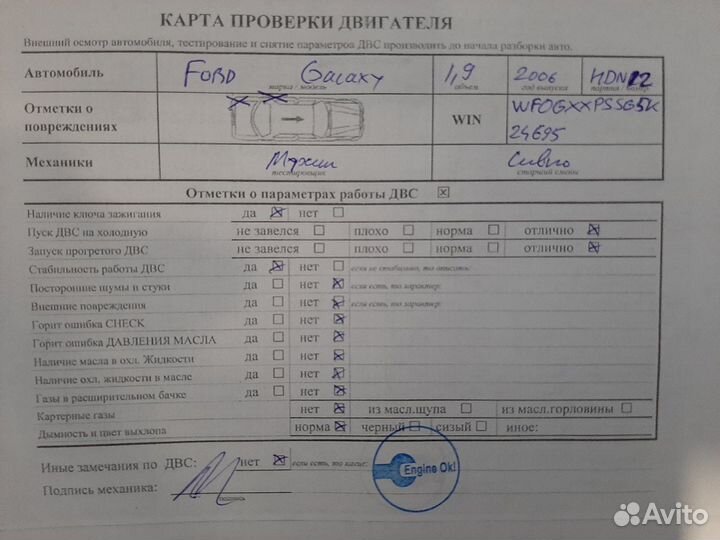 КАРТА ПРОВЕРКИ ДВИГАТЕЛЯ
Внешний осмотр автомобиля, тестирование и снятие параметров ДВС производить до начала разборки авто.
Автомобиль FORD Galaxy 1,9 2006 HDN22
марка / модель объем год выпуска партия / номер
Отметки о повреждениях WIN WF0GXXPSSG5K
24695
Механики
тестировщик старший смены
Отметки о параметрах работы ДВС ☒
Наличие ключа зажигания да ☒ нет ☐
Пуск ДВС на холодную не завелся ☐ плохо ☐ норма ☐ отлично ☒
Запуск прогретого ДВС не завелся ☐ плохо ☐ норма ☐ отлично ☒
Стабильность работы ДВС да ☒ нет ☐ если не стабильно, то описать:
Посторонние шумы и стуки да ☐ нет ☒ если есть, то характер:
Внешние повреждения да ☐ нет ☒ если есть, то характер:
Горит ошибка CHECK да ☐ нет ☒
Горит ошибка ДАВЛЕНИЯ МАСЛА да ☐ нет ☒
Наличие масла в охл. Жидкости да ☐ нет ☒
Наличие охл. жидкости в масле да ☐ нет ☒
Газы в расширительном бачке да ☐ нет ☒
Картерные газы нет ☒ из масл.щупа ☐ из масл.горловины ☐
Дымность и цвет выхлопа норма ☒ черный ☐ сизый ☐ иное:
Иные замечания по ДВС: нет ☒ если есть, то какие:
Подпись механика:
Engine Ok!
Avito